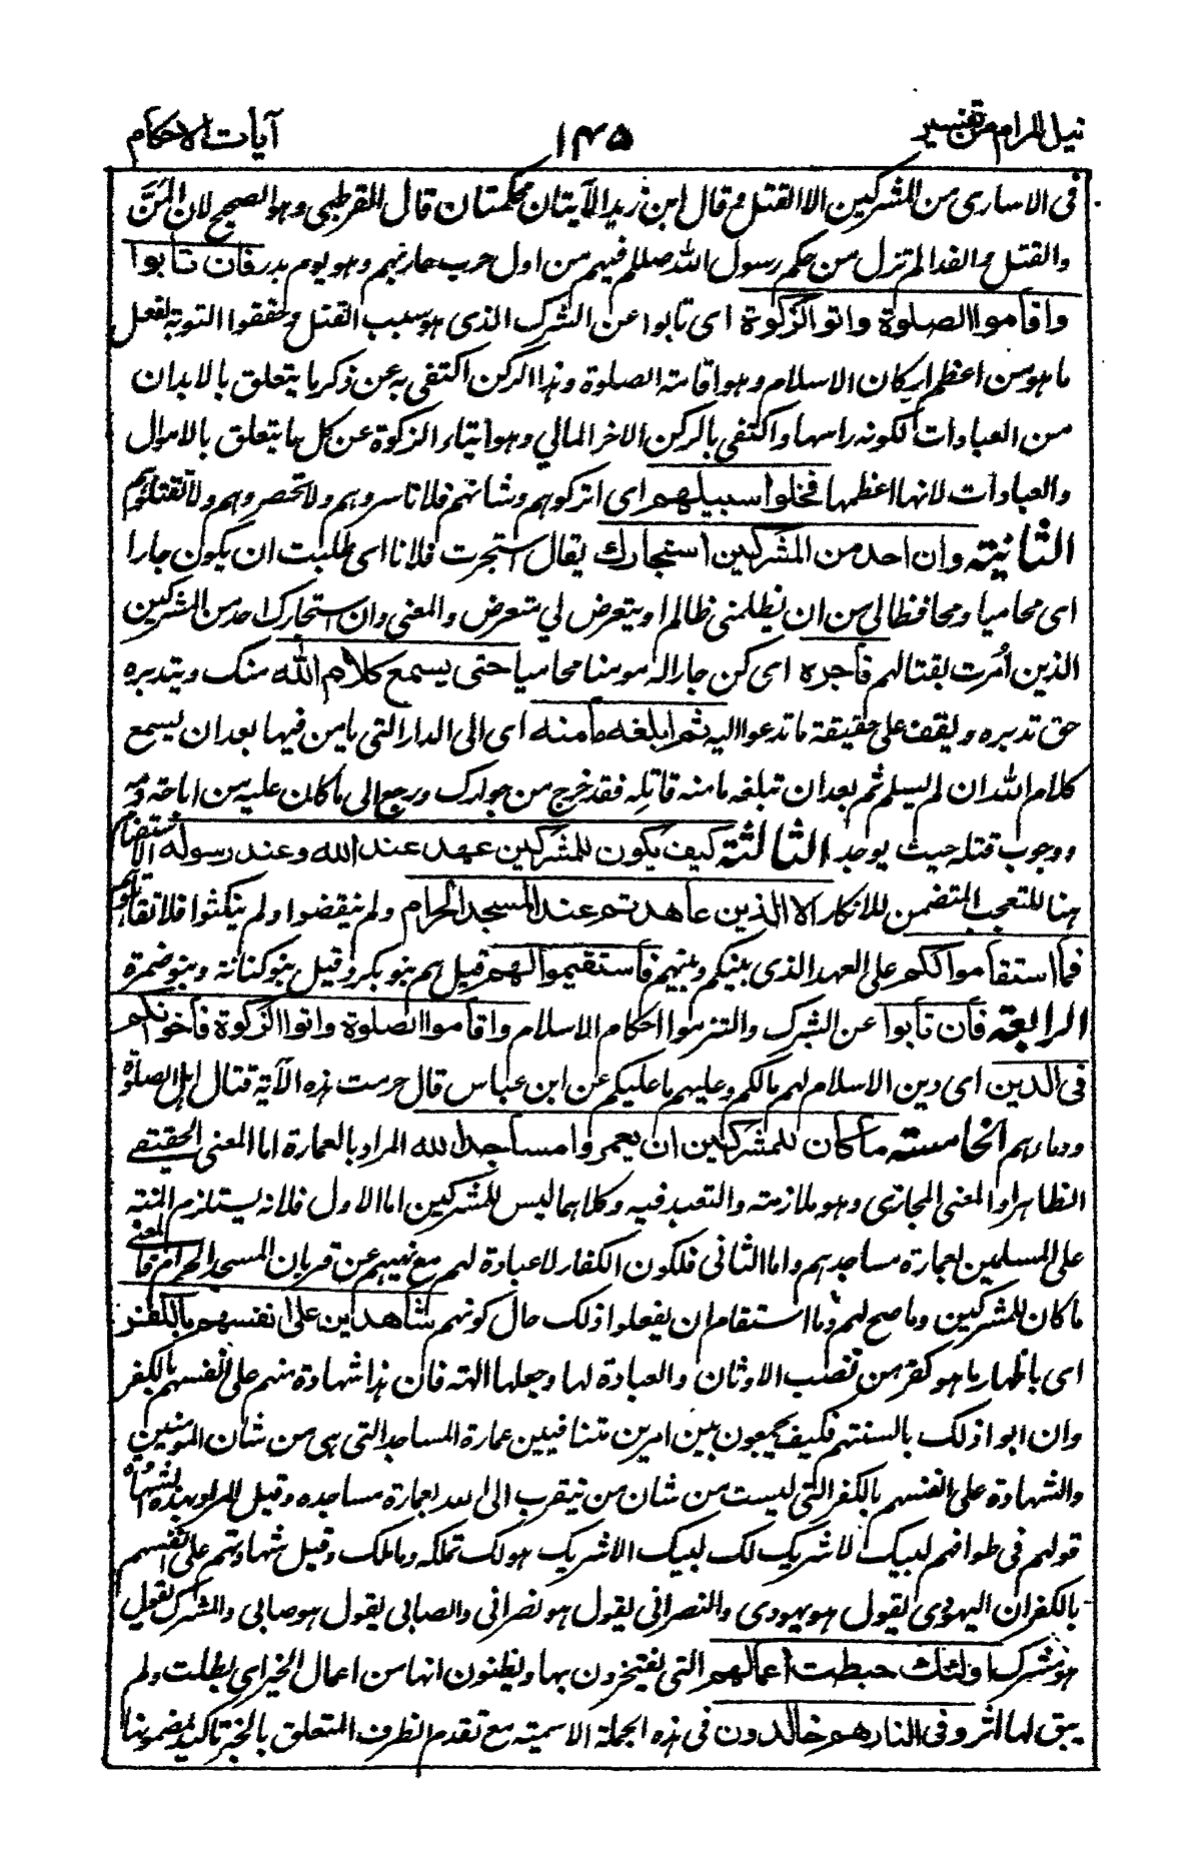 نيل المرام من تفسير ١٤٥ آيات الاحكام
فى الاسارى من المشركين الا القتل وقال ابن زيد الآيتان محكمتان قال القرطبى وهو الصحيح لان المَنَّ
والقتل والفدا لم تزل من حكم رسول الله صللم فيهم من اول حرب حاربهم وهو يوم بدر فان تابوا
واقاموا الصلوة واتوا الزكوة اى تابوا عن الشرك الذى هو سبب القتل وحققوا التوبة بفعل
ما هو من اعظم اركان الاسلام وهو اقامة الصلوة وهذا الركن اكتفى به عن ذكر ما يتعلق بالابدان
من العبادات لكونه راسها واكتفى بالركن الاخر المالي وهو ايتاء الزكوة عن كل ما يتعلق بالاموال
والعبادات لانها اعظمها فخلوا سبيلهم اى اتركوهم وشانهم فلا تاسروهم ولا تحصروهم ولا تقتلوهم
الثانية وان احد من المشركين استجارك يقال استجرت فلانا اى طلبت ان يكون جارا
اى محاميا ومحافظا لي من ان يظلمنى ظالم او يتعرض لي متعرض والمعنى وان استجارك احد من المشركين
الذين اُمرت بقتالهم فأجره اى كن جارا له مومنا محاميا حتى يسمع كلام الله منك ويتدبره
حق تدبره ويقف على حقيقة ما تدعوا اليه ثم ابلغه مأمنه اى الى الدار التى يامن فيها بعد ان يسمع
كلام الله ان لم يسلم ثم بعد ان تبلغه مامنه قاتله فقد خرج من جوارك ورجع الى ما كان عليه من اباحة دمه
ووجوب قتله حيث يوجد الثالثة كيف يكون للمشركين عهد عند الله وعند رسوله الاستفهام
هنا للتعجب المتضمن للانكار الا الذين عاهدتم عند المسجد الحرام ولم ينقضوا ولم ينكثوا فلا تقاتلوهم
فما استقاموا لكم على العهد الذى بينكم وبينهم فاستقيموا لهم قيل هم بنو بكر وقيل بنو كنانة وبنو ضمرة
الرابعة فان تابوا عن الشرك والتزموا احكام الاسلام واقاموا الصلوة واتوا الزكوة فاخوانكم
فى الدين اى دين الاسلام لهم مالكم وعليهم ما عليكم عن ابن عباس قال حرمت هذه الآية قتال اهل الصلوة
ودمارهم الخامسة ما كان للمشركين ان يعمروا مساجد الله المراد بالعمارة اما المعنى الحقيقى
الظاهر او المعنى المجازى وهو ملازمته والتعبد فيه وكلاهما ليس للمشركين اما الاول فلانه يستلزم المنة
على المسلمين لعمارة مساجدهم واما الثانى فلكون الكفار لا عبادة لهم مع نهيهم عن قربان المسجد الحرام فالمعنى
ما كان للمشركين وما صح لهم وما استقام ان يفعلوا ذلك حال كونهم شاهدين على انفسهم بالكفر
اى باظهار ما هو كفر من نصب الاوثان والعبادة لها وجعلها الهة فان هذا شهادة منهم على انفسهم بالكفر
وان ابوا ذلك بالسنتهم فكيف يجمعون بين امرين متنافيين عمارة المساجد التى هى من شان المومنين
والشهادة على انفسهم بالكفر التى ليست من شان من يتقرب الى الله بعمارة مساجده وقيل المراد بهذه الشهادة
قولهم فى طوافهم لبيك لا شريك لك لبيك الا شريك هو لك تملكه وما ملك وقيل شهادتهم على انفسهم
بالكفر ان اليهودى يقول هو يهودى والنصرانى يقول هو نصرانى والصابى يقول هو صابى والمشرك يقول
هو مشرك اولئك حبطت اعمالهم التى يفتخرون بها ويظنون انها من اعمال الخير اى بطلت ولم
يبق لها اثر وفى النار هم خالدون فى هذه الجملة الاسمية مع تقدم الظرف المتعلق بالخبر تاكيد لمضمونها